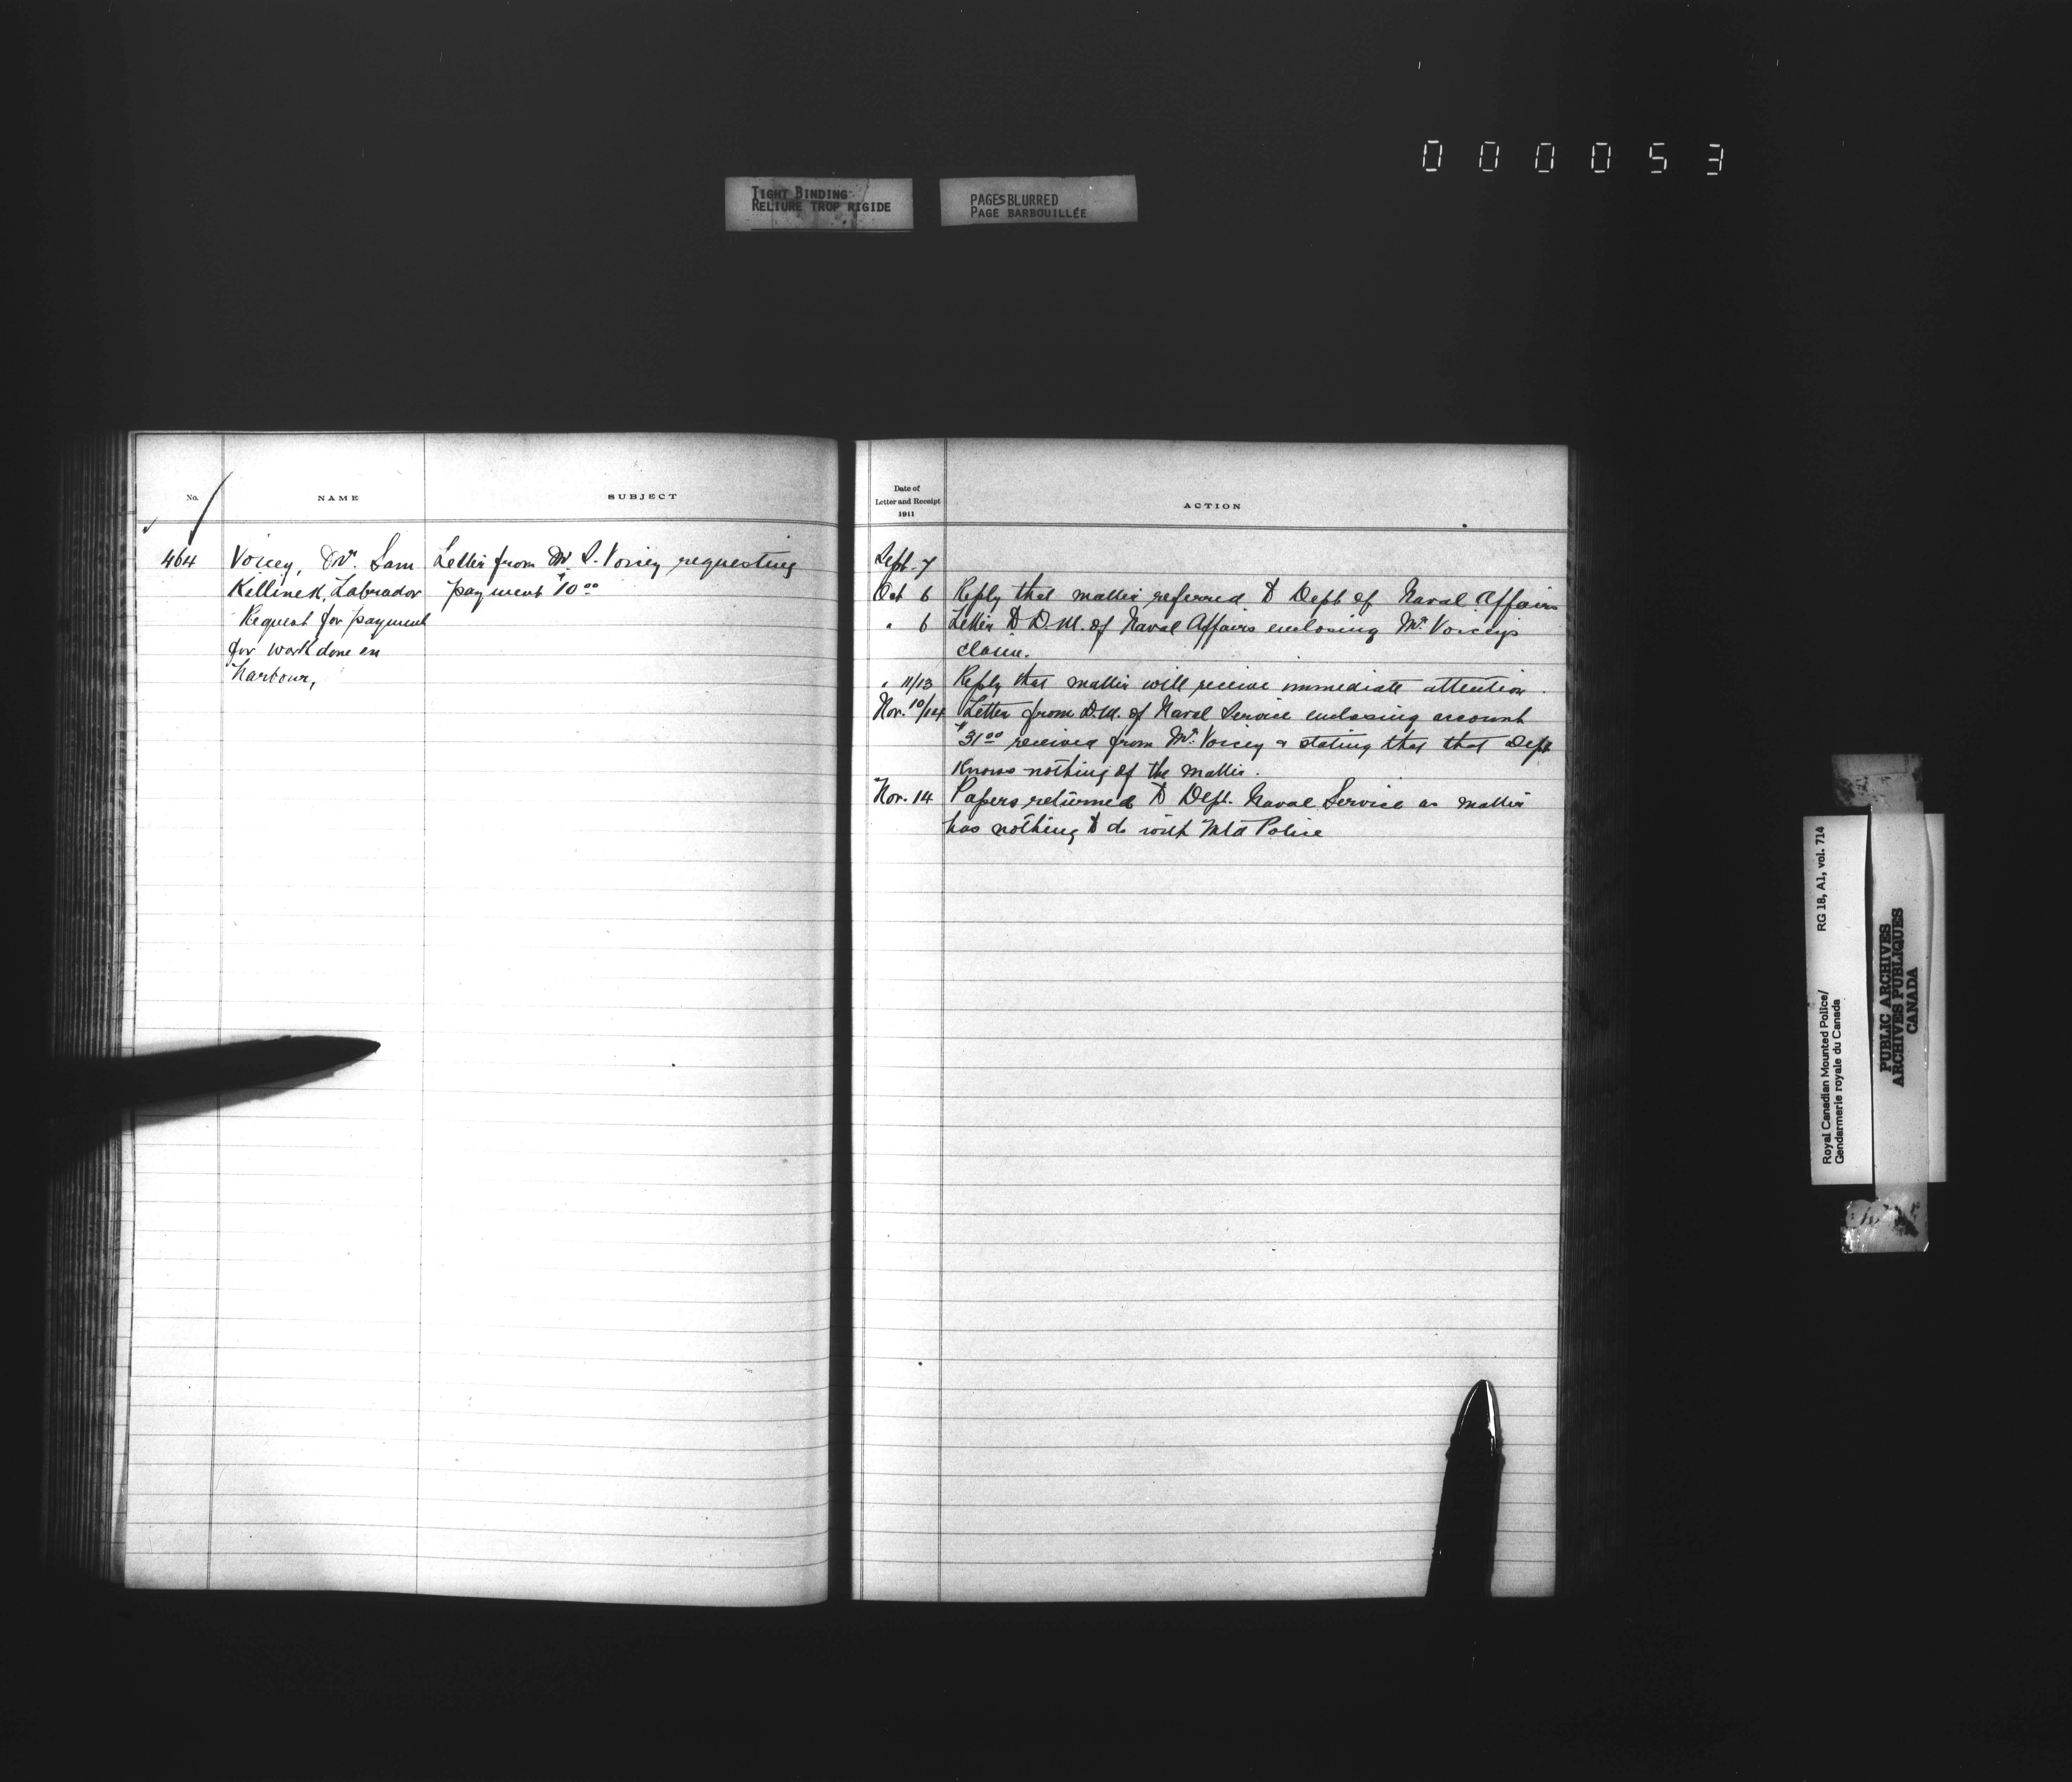 000053
TIGHT BINDING
RELIURE TROP RIGIDE
PAGES BLURRED
PAGE BARBOUILLÉE
No.
NAME
SUBJECT
464
Voicey, Mr. Sam
Killinek, Labrador
Request for payment
for work done in
harbour,
Letter from Mr. S. Voisey requesting
payment $10.00
Date of
Letter and Receipt
1911
ACTION
Sept. 7
Oct 6 Reply that matter referred to Dept of Naval Affairs
" 6 Letter to D.M. of Naval Affairs enclosing Mr. Voicey's
claim.
" 11/13 Reply that matter will receive immediate attention.
Nov. 10/14 Letter from D.M. of Naval Service enclosing account
$31.00 received from Mr. Voicey & stating that that Dept
knows nothing of the matter.
Nov. 14 Papers returned to Dept. Naval Service as matter
has nothing to do with Mtd Police
Royal Canadian Mounted Police/
Gendarmerie royale du Canada
RG 18, A1, vol. 714
PUBLIC ARCHIVES
ARCHIVES PUBLIQUES
CANADA